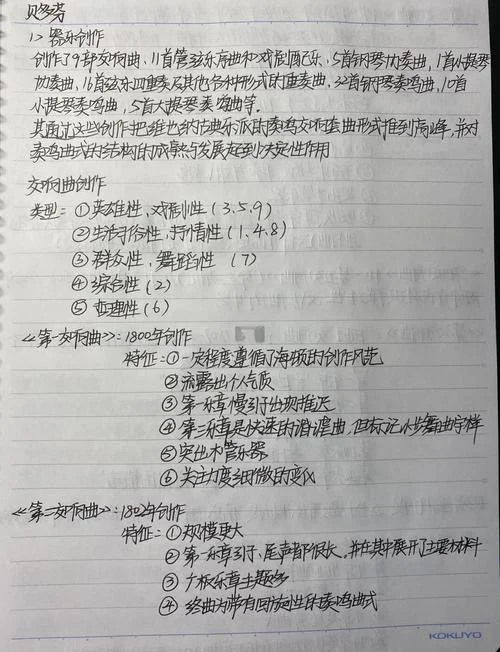 贝多芬
1、器乐创作
创作了9部交响曲，11首管弦乐序曲和戏剧配乐，5首钢琴协奏曲，1首小提琴
协奏曲，16首弦乐四重奏及其他各种形式的重奏曲，32首钢琴奏鸣曲，10首
小提琴奏鸣曲，5首大提琴奏鸣曲等。
其通过这些创作把维也纳古典乐派的奏鸣交响套曲形式推到高峰，并对
奏鸣曲式的结构的成熟与发展起到决定性作用
交响曲创作
类型：①英雄性，戏剧性（3.5.9）
②生活习俗性，抒情性（1.4.8）
③群众性，舞蹈性（7）
④综合性（2）
⑤哲理性（6）
《第一交响曲》：1800年创作
特征：①一定程度遵循了海顿的创作风范
②流露出个人气质
③第一乐章慢引子出现推迟
④第三乐章是快速的谐谑曲，但标记小步舞曲字样
⑤突出木管乐器
⑥关注力度细微的变化
《第二交响曲》：1802年创作
特征：①规模更大
②第一乐章引子、尾声都很长，并在其中展开了主要材料
③广板乐章主题多
④终曲为带有回旋性的奏鸣曲式
KOKUYO